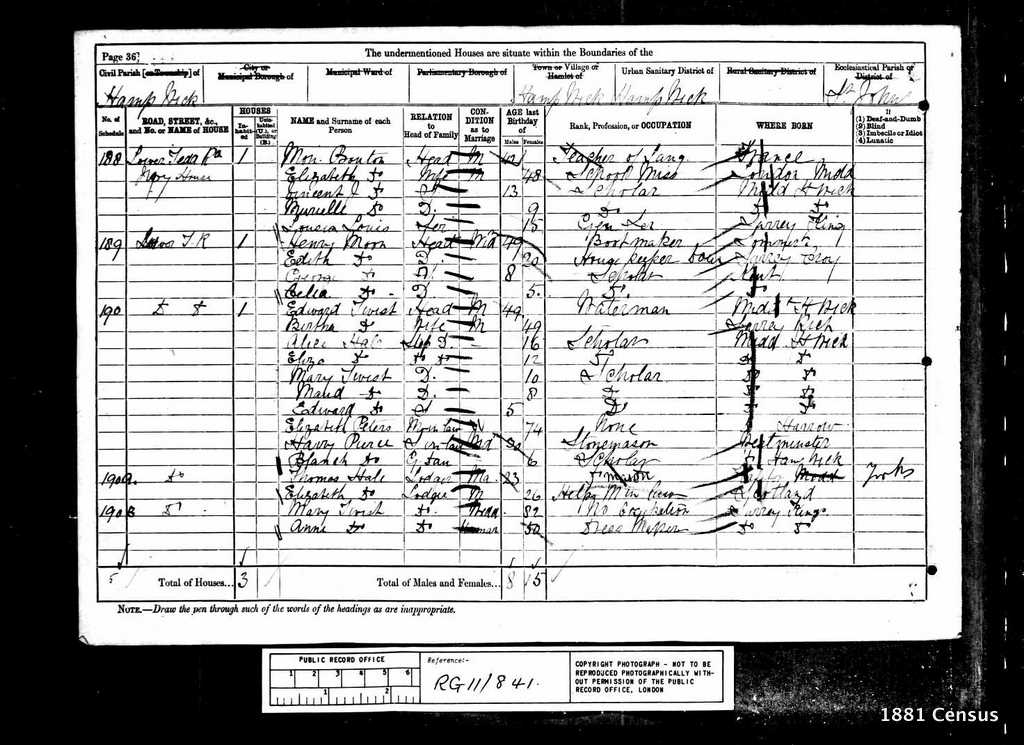 Page 36
The undermentioned Houses are situate within the Boundaries of the
Civil Parish [or Township] of
City or Municipal Borough of
Municipal Ward of
Parliamentary Borough of
Town or Village or Hamlet of
Urban Sanitary District of
Rural Sanitary District of
Ecclesiastical Parish or District of
Hamp Wick Hamp Wick Hamp Wick St John
No. of Schedule
ROAD, STREET, &c., and No. or NAME of HOUSE
HOUSES
Inhabited
Uninhabited (U.), or Building (B.)
NAME and Surname of each Person
RELATION to Head of Family
CONDITION as to Marriage
AGE last Birthday of
Males Females
Rank, Profession, or OCCUPATION
WHERE BORN
If
(1) Deaf-and-Dumb
(2) Blind
(3) Imbecile or Idiot
(4) Lunatic
188 Lower Tedd Rd 1 Mon. Head M 42 Teacher of Lang France
Elizabeth Do Wife M 48 School Miss London Midd
Vincent J Do S 13 Scholar Midd H Wick
Do D. 9 Do Do Do
Louisa Louis Ser 15 Gen Ser Surrey King
189 Lower T. R 1 Henry Moon Head Wid 49 Bootmaker
Edith Do D. 20 Housekeeper Surrey Croy
George Do S 8 Scholar Kent
Celia Do D 5 Do Do
190 Do Do 1 Edward Twist Head M 49 Waterman Midd H Wick
Bertha Do Wife M 49 Surrey Rich
Alice Hale Step D. 16 Scholar Midd H Wick
Eliza Do Do Do 12 Do Do Do
Mary Twist D. 10 Scholar Do Do
Maud Do D. 8 Do Do Do
Edward Do S 5 Do Do Do
Elizabeth Peters M in law W 74 None Harrow
Harry Pierce S in law 30 Stonemason Westminster
Blanch Do G Dau 6 Scholar Do Ham Wick
190a Do Thomas Hale Lodger Ma 23 Midd Yorks
Elizabeth Do Lodger M 26 Scotland
190B Do Mary Twist Do Widd 82 No Occupation Surrey Kings
Anne Do Do 50 Dress Maker Do Do
5 Total of Houses... 3 Total of Males and Females... 8 15
NOTE.—Draw the pen through such of the words of the headings as are inappropriate.
PUBLIC RECORD OFFICE
1 2 3 4 5 6
1 2
Reference:-
RG 11/841.
COPYRIGHT PHOTOGRAPH - NOT TO BE
REPRODUCED PHOTOGRAPHICALLY WITH-
OUT PERMISSION OF THE PUBLIC
RECORD OFFICE, LONDON
1881 Census